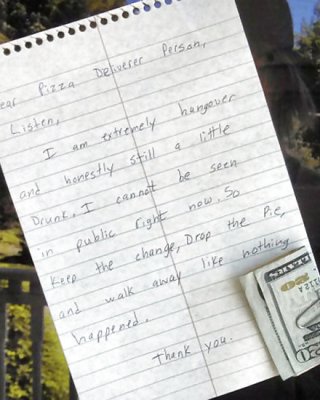 ear Pizza Deliverer Person,
Listen,
I am extremely hungover
and honestly still a little
Drunk. I cannot be seen
in public right now. So
keep the change, Drop the Pie,
and walk away like nothing
happened.
Thank you.
20